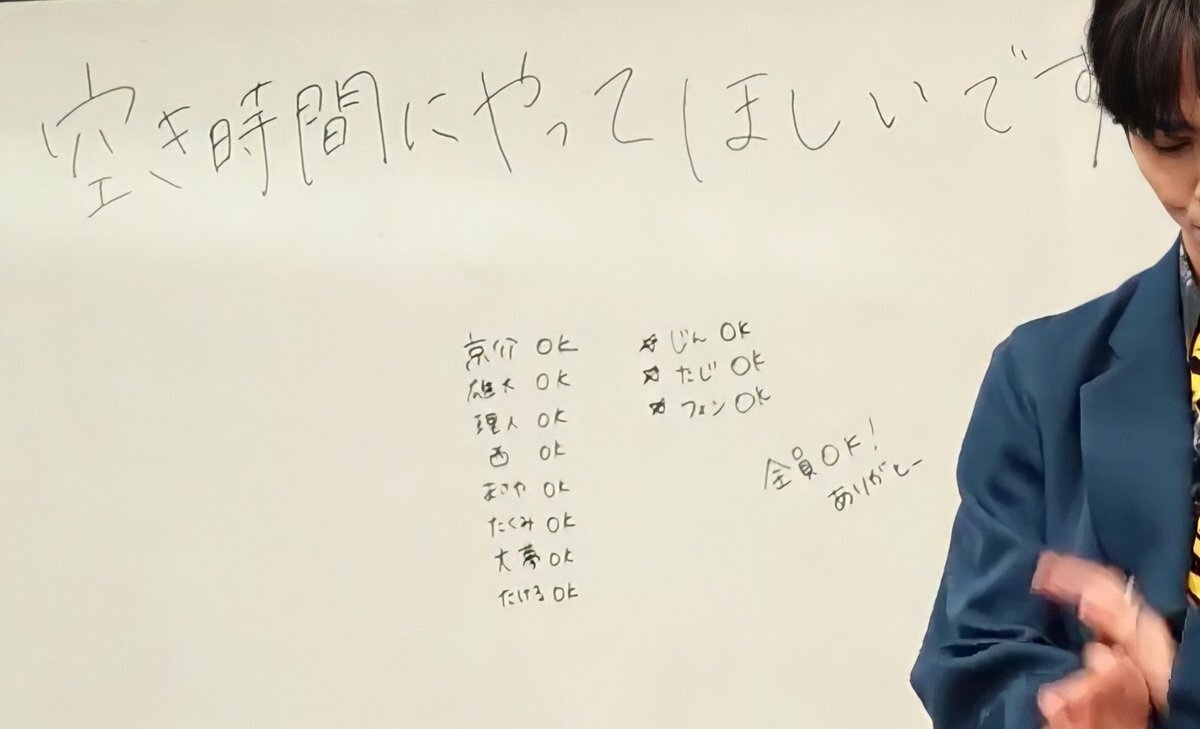 空き時間にやってほしいです
京介 OK
雄大 OK
理人 OK
西 OK
まさや OK
たくみ OK
大夢 OK
たける OK
☆ じん OK
☆ たじ OK
☆ フェン OK
全員OK!
ありがとー